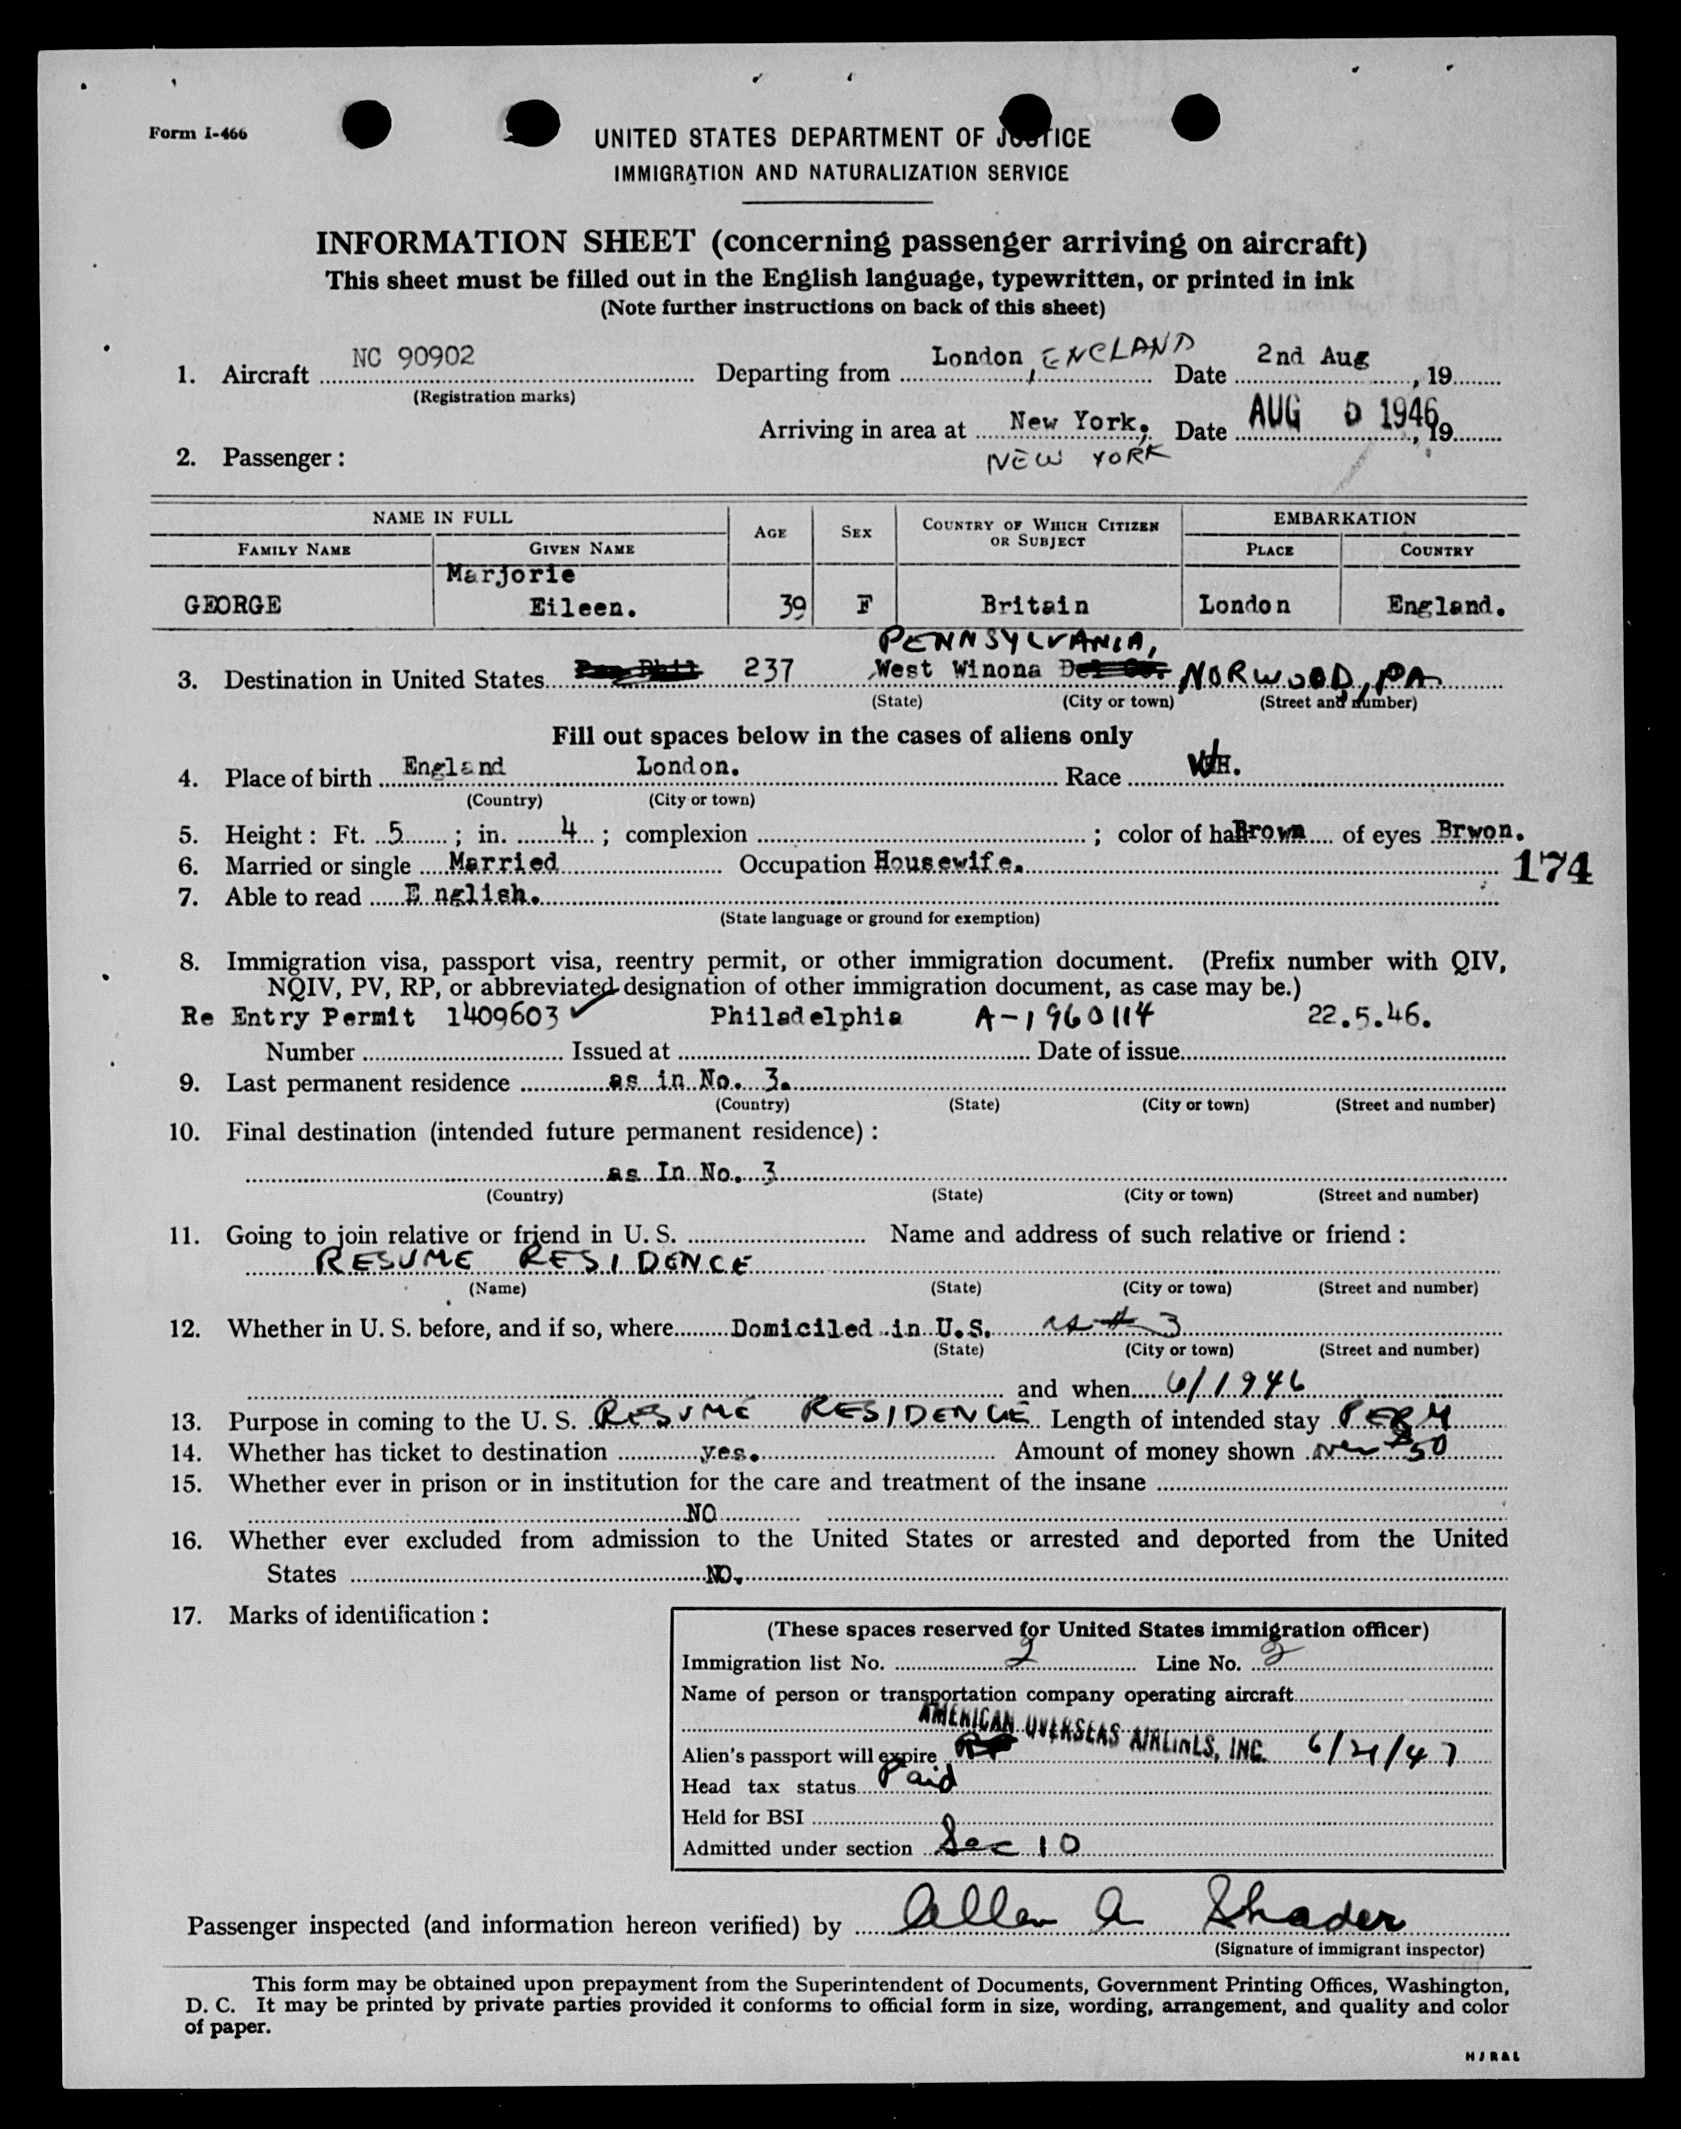 Form I-466
UNITED STATES DEPARTMENT OF JUSTICE
IMMIGRATION AND NATURALIZATION SERVICE
INFORMATION SHEET (concerning passenger arriving on aircraft)
This sheet must be filled out in the English language, typewritten, or printed in ink
(Note further instructions on back of this sheet)
1. Aircraft NC 90902 Departing from London, ENGLAND Date 2nd Aug, 19
(Registration marks)
Arriving in area at New York, Date AUG 1946, 19
2. Passenger: NEW YORK
NAME IN FULL AGE SEX COUNTRY OF WHICH CITIZEN OR SUBJECT EMBARKATION
FAMILY NAME GIVEN NAME PLACE COUNTRY
Marjorie
GEORGE Eileen. 39 F Britain London England.
PENNSYLVANIA,
3. Destination in United States 237 West Winona NORWOOD, PA
(State) (City or town) (Street and number)
Fill out spaces below in the cases of aliens only
4. Place of birth England London. Race
(Country) (City or town)
5. Height: Ft. 5; in. 4; complexion ; color of hair Brown of eyes Brwon.
6. Married or single Married Occupation Housewife. 174
7. Able to read E nglish.
(State language or ground for exemption)
8. Immigration visa, passport visa, reentry permit, or other immigration document. (Prefix number with QIV,
NQIV, PV, RP, or abbreviated designation of other immigration document, as case may be.)
Re Entry Permit 1409603 ✓ Philadelphia A-1960114 22.5.46.
Number Issued at Date of issue
9. Last permanent residence as in No. 3.
(Country) (State) (City or town) (Street and number)
10. Final destination (intended future permanent residence):
as In No. 3
(Country) (State) (City or town) (Street and number)
11. Going to join relative or friend in U. S. Name and address of such relative or friend:
RESUME RESIDENCE
(Name) (State) (City or town) (Street and number)
12. Whether in U. S. before, and if so, where Domiciled in U.S. as # 3
(State) (City or town) (Street and number)
and when 6/1946
13. Purpose in coming to the U. S. RESUME RESIDENCE Length of intended stay PERM
14. Whether has ticket to destination yes. Amount of money shown over $50
15. Whether ever in prison or in institution for the care and treatment of the insane
NO
16. Whether ever excluded from admission to the United States or arrested and deported from the United
States NO.
17. Marks of identification:
(These spaces reserved for United States immigration officer)
Immigration list No. 2 Line No. 2
Name of person or transportation company operating aircraft
AMERICAN OVERSEAS AIRLINES, INC.
Alien's passport will expire 6/21/47
Head tax status Paid
Held for BSI
Admitted under section Sec 10
Passenger inspected (and information hereon verified) by Allen A Shader
(Signature of immigrant inspector)
This form may be obtained upon prepayment from the Superintendent of Documents, Government Printing Offices, Washington,
D. C. It may be printed by private parties provided it conforms to official form in size, wording, arrangement, and quality and color
of paper.
HJR&L